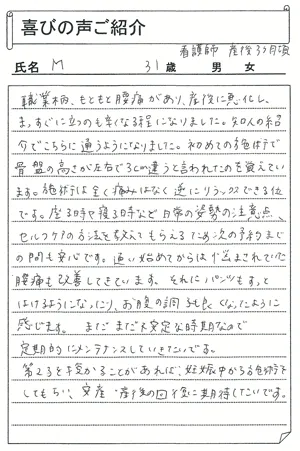 喜びの声ご紹介
看護師 産後3ヶ月頃
氏名 M 31歳 男 女
職業柄、もともと腰痛があり、産後に悪化し、
まっすぐに立つのも辛くなる程になりました。知人の紹
介でこちらに通うようになりました。初めての施術で
骨盤の高さが左右で3cm違うと言われたのを覚えてい
ます。施術は全く痛みはなく逆にリラックスできる位
です。座る時や寝る時など日常の姿勢の注意点、
セルフケアの方法も教えてもらえるため次の予約まで
の間も安心です。通い始めてからは悩まされていた
腰痛も改善してきています。それにパンツもすっと
はけるようになったり、お腹の調子も良くなったように
感じます。まだまだ不安定な時期なので
定期的にメンテナンスしていきたいです。
第2子を授かることがあれば、妊娠中から施術
してもらい、安産・産後の回復に期待したいです。